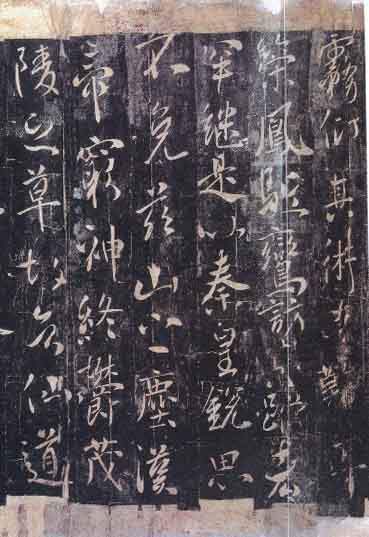 霧衍其術
鳳驂鸞
罕継是以秦皇銳思
不免茲山之塵漢
帝窮神終鬱茂
陵之草故知仙道